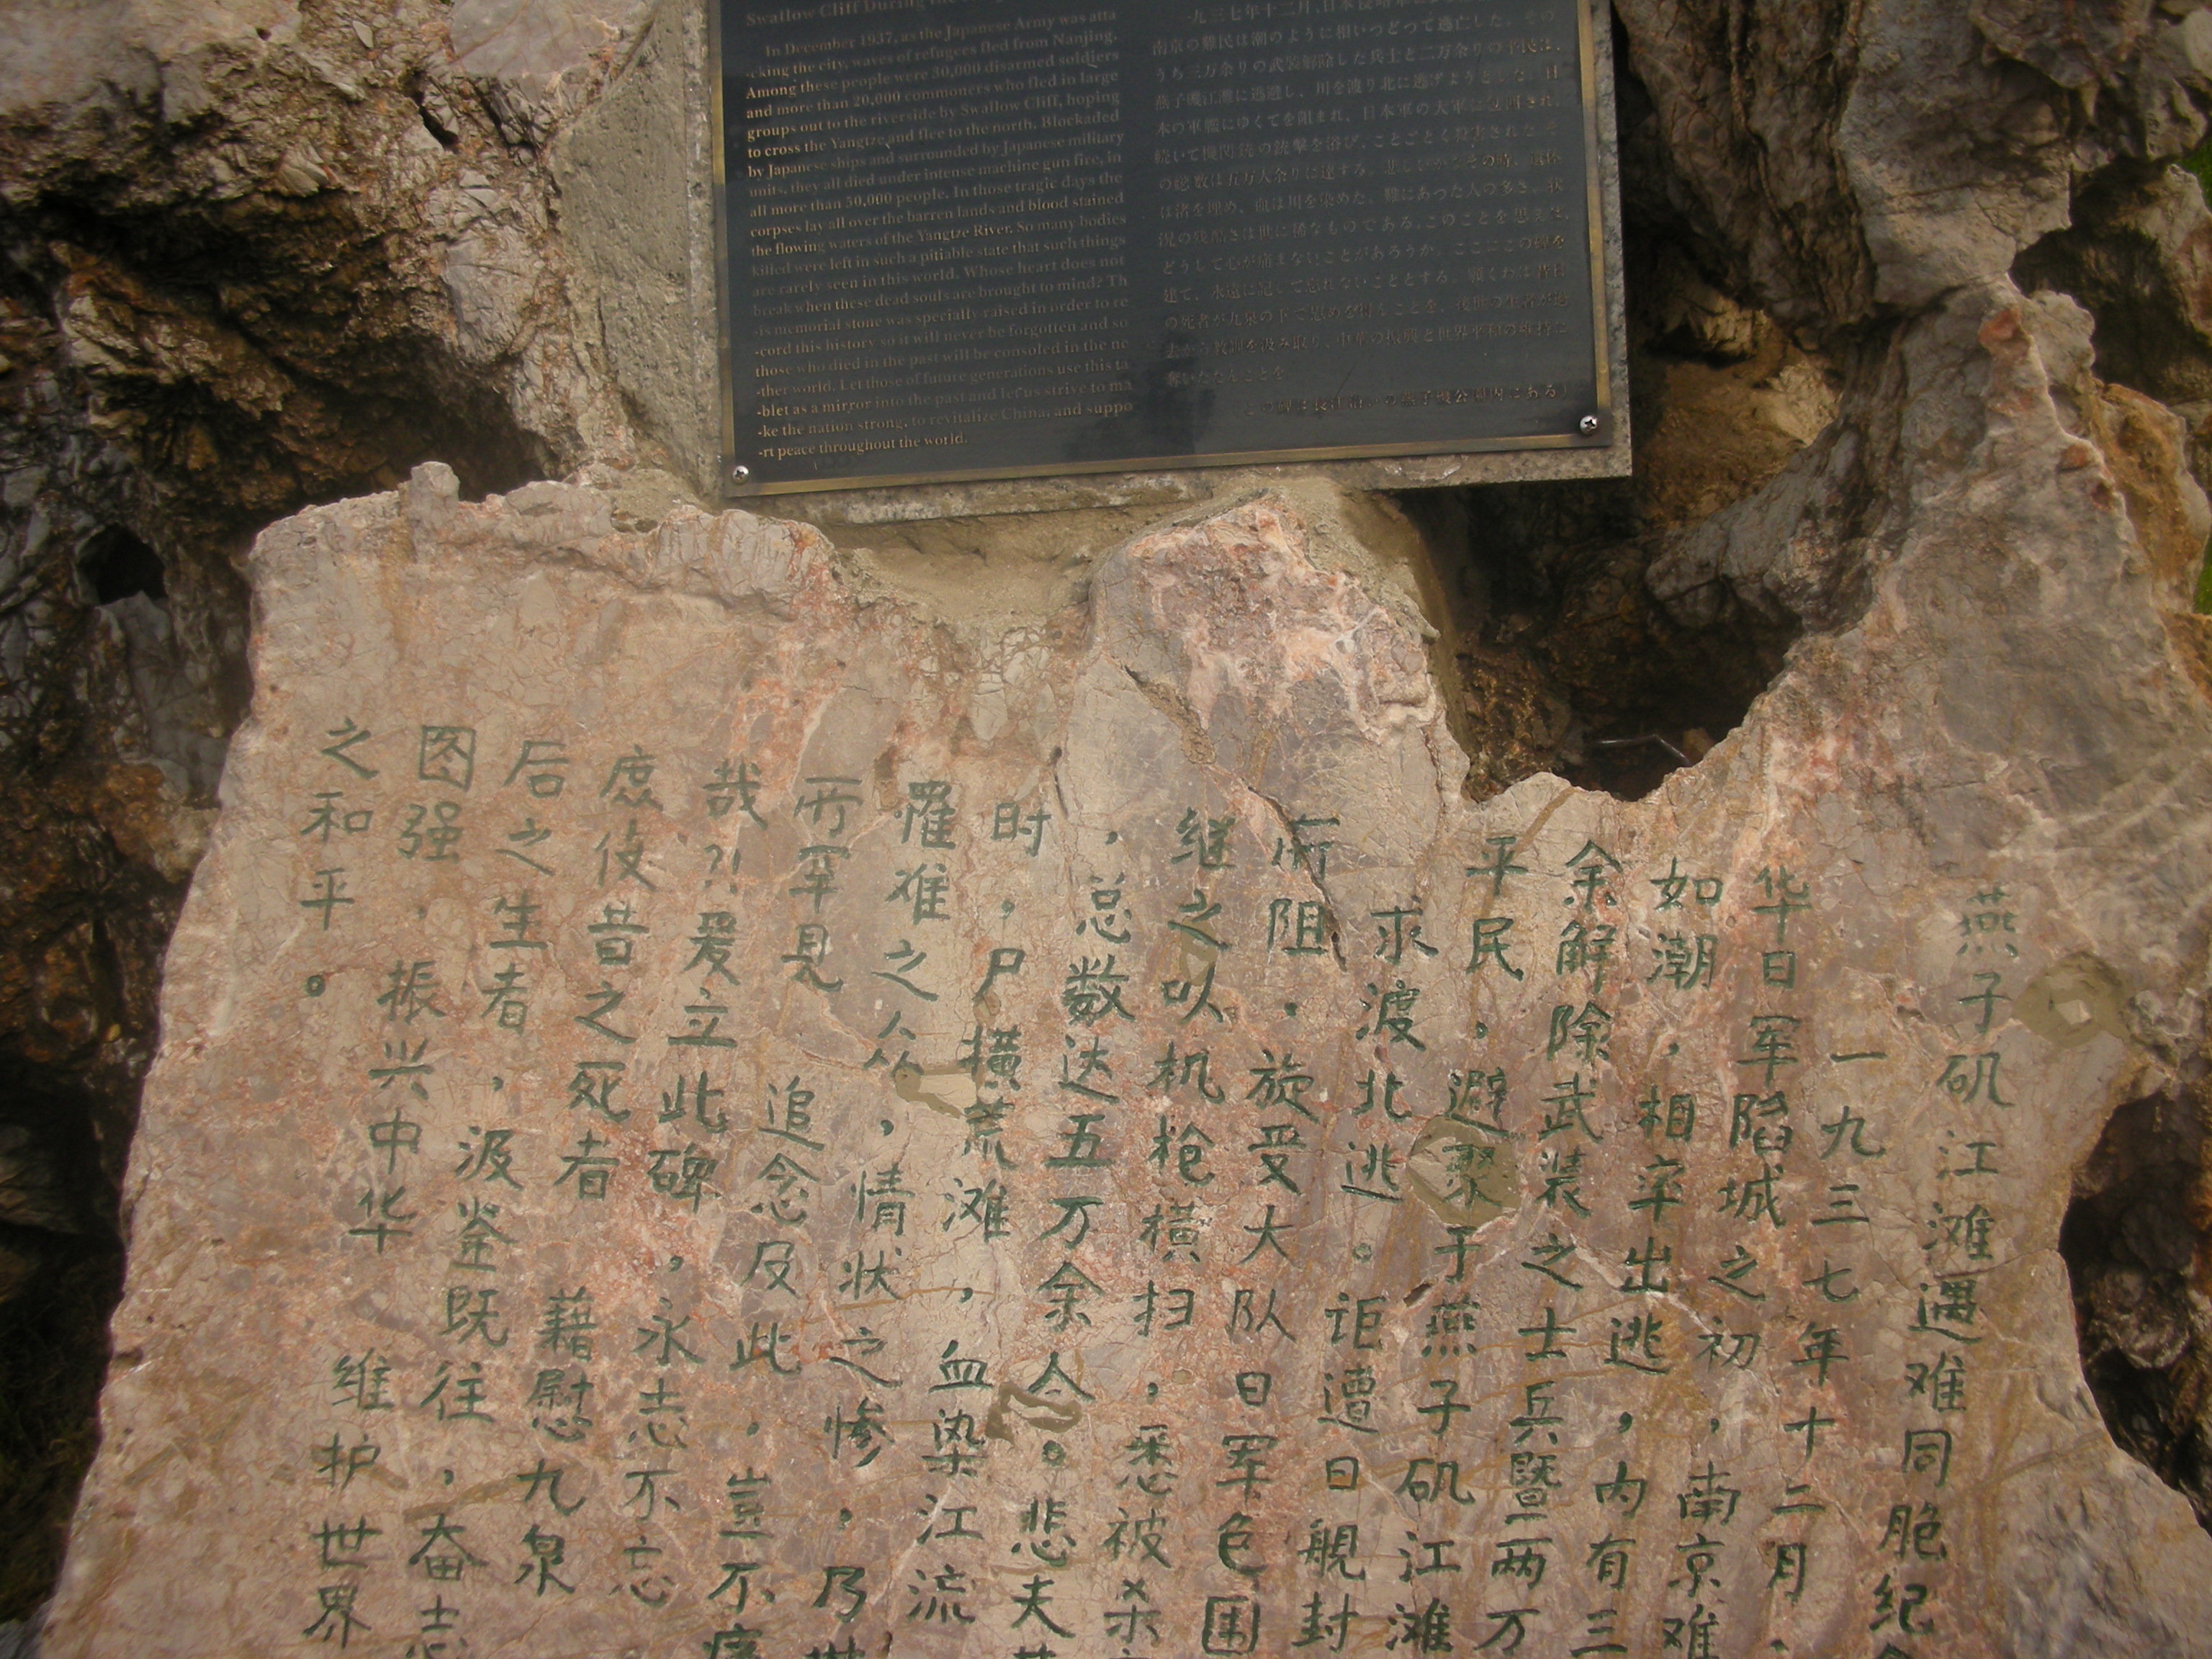 Swallow Cliff During the
In December 1937, as the Japanese Army was atta
-cking the city, waves of refugees fled from Nanjing.
Among these people were 30,000 disarmed soldiers
and more than 20,000 commoners who fled in large
groups out to the riverside by Swallow Cliff, hoping
to cross the Yangtze and flee to the north. Blockaded
by Japanese ships and surrounded by Japanese military
units, they all died under intense machine gun fire, in
all more than 50,000 people. In those tragic days the
corpses lay all over the barren lands and blood stained
the flowing waters of the Yangtze River. So many bodies
killed were left in such a pitiable state that such things
are rarely seen in this world. Whose heart does not
break when these dead souls are brought to mind? Th
-is memorial stone was specially raised in order to re
-cord this history so it will never be forgotten and so
those who died in the past will be consoled in the ne
-ther world. Let those of future generations use this ta
-blet as a mirror into the past and let us strive to ma
-ke the nation strong, to revitalize China, and suppo
-rt peace throughout the world.
一九三七年十二月、日本侵略軍
南京の難民は潮のように相いつどって逃亡した。その
うち三万余りの武装解除した兵士と二万余りの平民は、
燕子磯江灘に逃避し、川を渡り北に逃げようとした。日
本の軍艦にゆくてを阻まれ、日本軍の大軍に包囲され、
続いて機関銃の銃撃を浴び、ことごとく殺害された。そ
の総数は五万人余りに達する。悲しいかなその時、遺体
は渚を埋め、血は川を染めた。難にあった人の多さ、状
況の残酷さは世に稀なものである。このことを思えば、
どうして心が痛まないことがあろうか。ここにこの碑を
建て、永遠に記して忘れないこととする。願くわは昔日
の死者が九泉の下で慰めを得んことを、後世の生者が過
去から教訓を汲み取り、中華の振興と世界平和の維持に
奮いたたんことを
この碑は長江沿いの燕子磯公園内にある)
燕子矶江滩遇难同胞纪
一九三七年十二月，
华日军陷城之初，南京难
如潮，相率出逃，内有三
余解除武装之士兵暨两万
平民，避聚于燕子矶江滩
求渡北逃。讵遭日舰封
所阻，旋受大队日军包围
继之以机枪横扫，悉被杀
，总数达五万余人。悲夫
时，尸横荒滩，血染江流
罹难之众，情状之惨，乃
所罕见 追念及此，岂不
哉？！爰立此碑，永志不忘
庶使昔之死者 藉慰九泉
后之生者，汲鉴既往，奋志
图强，振兴中华 维护世界
之和平。